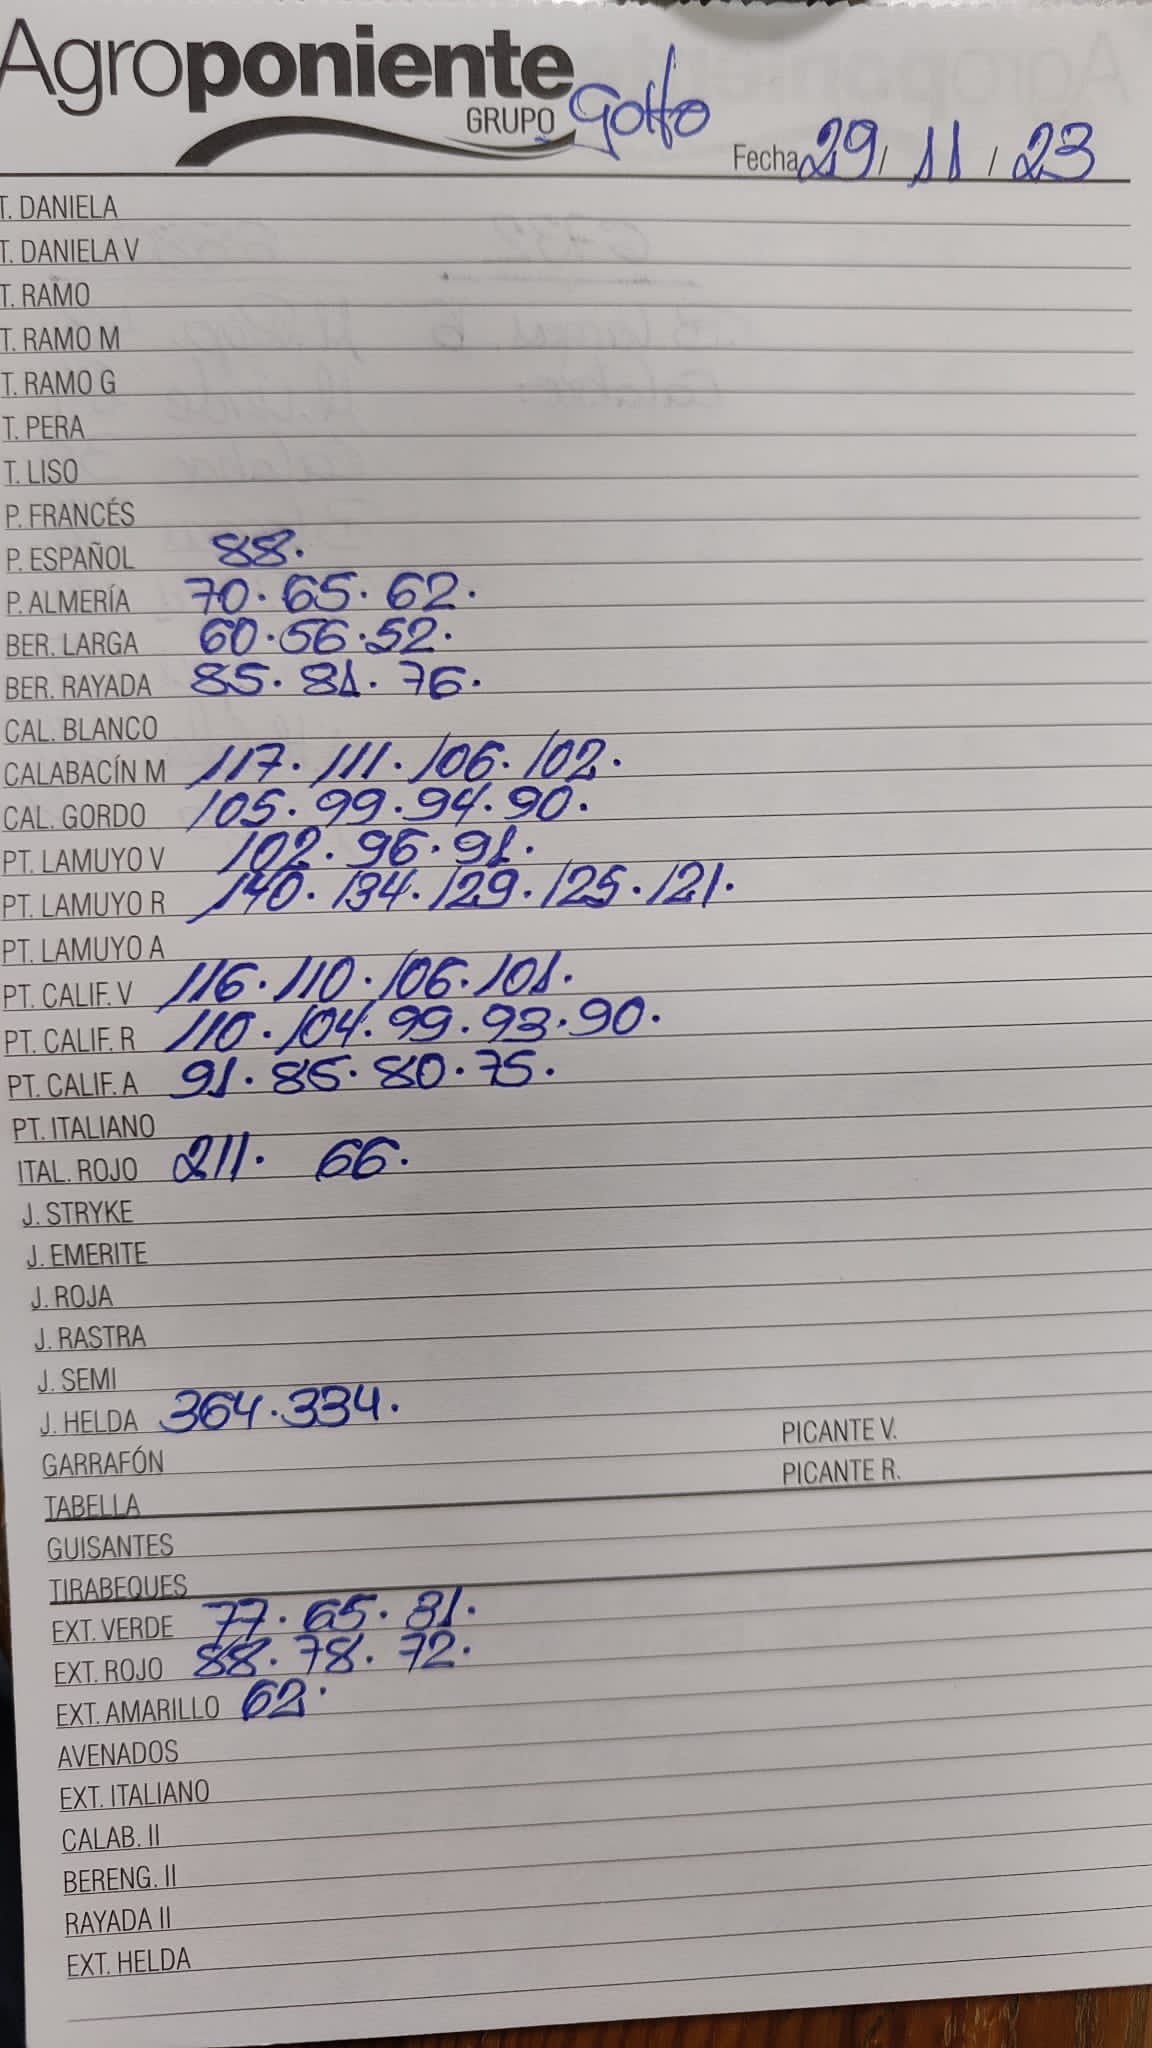 Agroponiente
GRUPO Golfo
Fecha 29 / 11 / 23
T. DANIELA
T. DANIELA V
T. RAMO
T. RAMO M
T. RAMO G
T. PERA
T. LISO
P. FRANCÉS
P. ESPAÑOL 88.
P. ALMERÍA 70. 65. 62.
BER. LARGA 60. 56. 52.
BER. RAYADA 85. 81. 76.
CAL. BLANCO
CALABACÍN M 117. 111. 106. 102.
CAL. GORDO 105. 99. 94. 90.
PT. LAMUYO V 102. 96. 91.
PT. LAMUYO R 140. 134. 129. 125. 121.
PT. LAMUYO A
PT. CALIF. V 116. 110. 106. 101.
PT. CALIF. R 110. 104. 99. 93. 90.
PT. CALIF. A 91. 85. 80. 75.
PT. ITALIANO
ITAL. ROJO 211. 66.
J. STRYKE
J. EMERITE
J. ROJA
J. RASTRA
J. SEMI
J. HELDA 364. 334.
PICANTE V.
GARRAFÓN
PICANTE R.
TABELLA
GUISANTES
TIRABEQUES
EXT. VERDE 77. 65. 81.
EXT. ROJO 88. 78. 72.
EXT. AMARILLO 62.
AVENADOS
EXT. ITALIANO
CALAB. II
BERENG. II
RAYADA II
EXT. HELDA